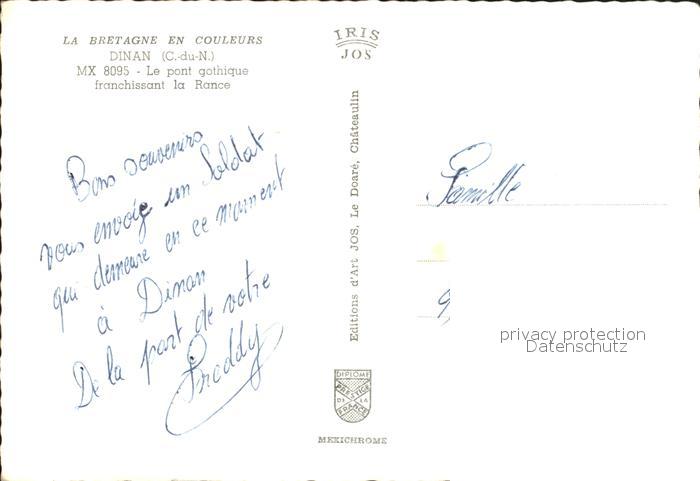 LA BRETAGNE EN COULEURS
DINAN (C.-du-N.)
MX 8095 - Le pont gothique
franchissant la Rance
Bons souvenirs
vous envoie un Soldat
qui demeure en ce moment
à Dinan
De la part de votre
Freddy
IRIS
JOS
Editions d'Art JOS, Le Doaré, Châteaulin
DIPLOME
PRESTIGE
DE LA
FRANCE
MEXICHROME
Famille
9
privacy protection
Datenschutz